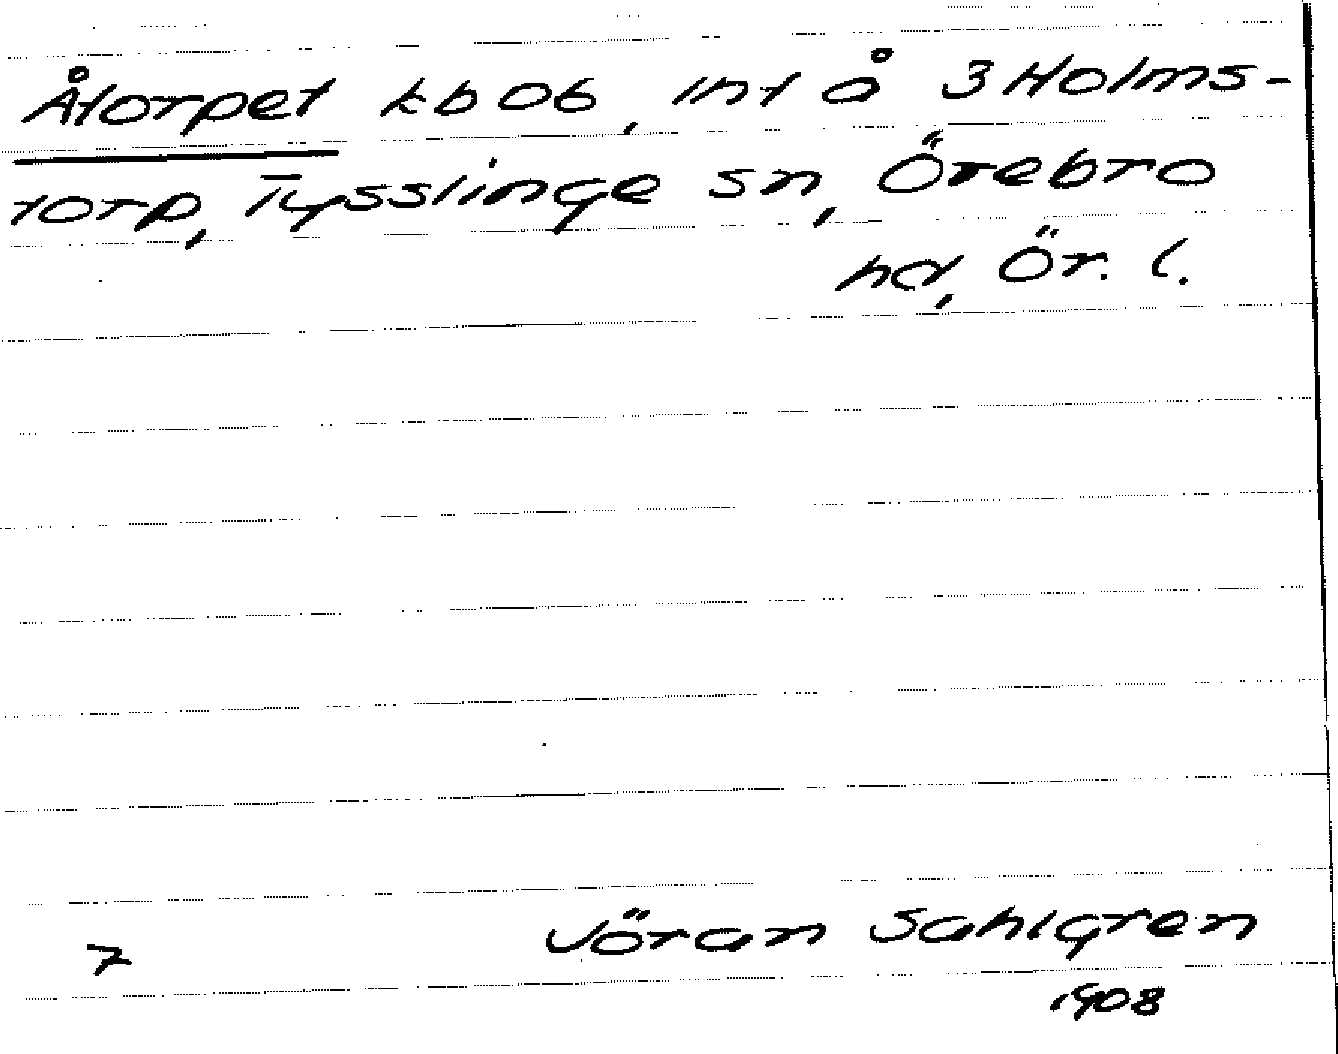 Åtorpet kb 06, int å 3 Holms-
torp, Tysslinge sn, Örebro
hd, Ör. l.
7
Jöran Sahlgren
1908